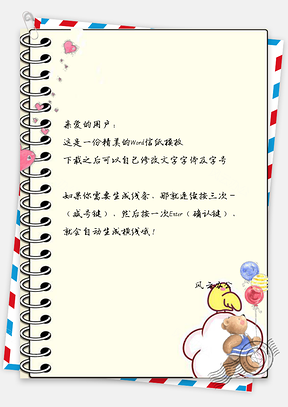 亲爱的用户：
这是一份精美的Word信纸模板
下载之后可以自己修改文字字体及字号
如果你需要生成线条，那就连续按三次-
（减号键），然后按一次Enter（确认键），
就会自动生成横线哦！